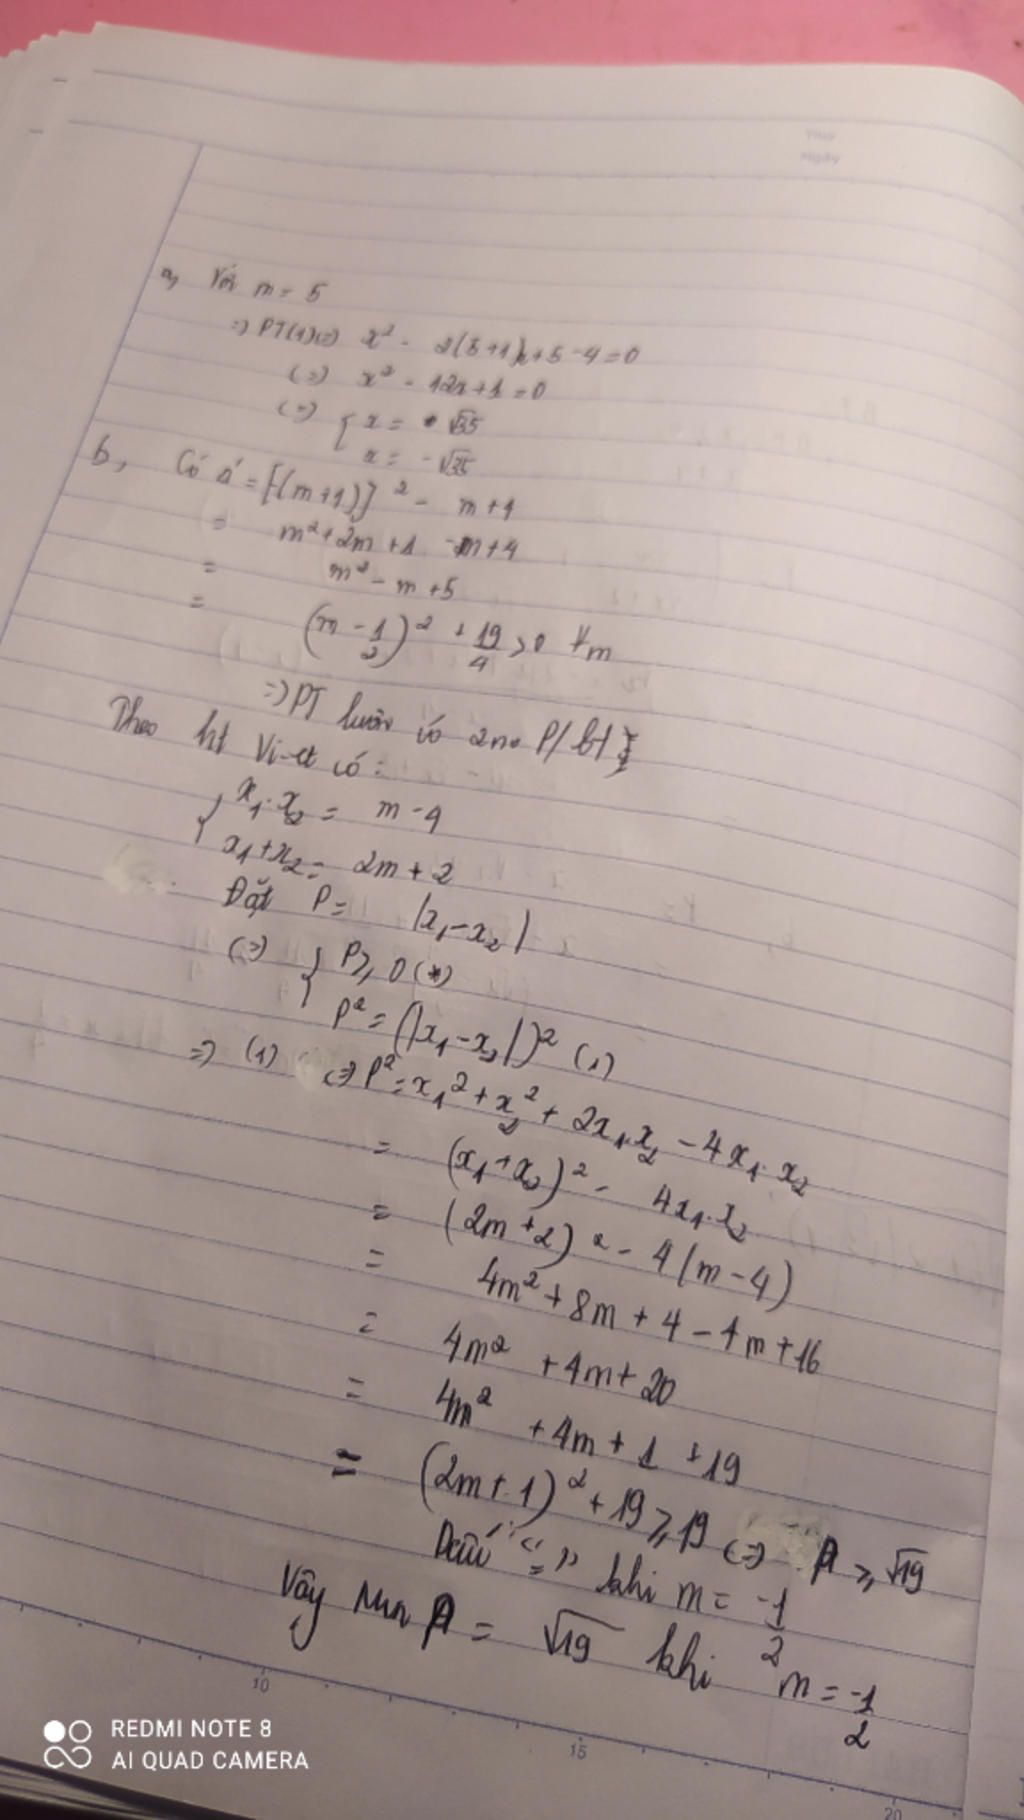 Thứ
Ngày
a, Với m = 5
=> PT(1)<=> x² - 2(5+1)x+5-4=0
<=> x² - 12x+1=0
<=> { x = √35
x = -√35
b, Có Δ' = [-(m+1)]² - m+4
= m²+2m+1 -m+4
= m² - m +5
= (m - 1/2)² + 19/4 >0 ∀m
=> PT luôn có 2 no P/bt
Theo ht Vi-et có:
{ x₁.x₂ = m-4
x₁+x₂ = 2m+2
Đặt P= |x₁-x₂|
<=> { P≥0 (*)
P² = (|x₁-x₂|)² (1)
=> (1) <=> P² = x₁²+x₂² + 2x₁.x₂ - 4x₁.x₂
= (x₁+x₂)² - 4x₁.x₂
= (2m+2)² - 4(m-4)
= 4m²+8m+4-4m+16
= 4m² +4m+20
= 4m² +4m+1 +19
= (2m+1)²+19≥19 <=> P≥√19
Dấu "=" khi m = -1/2
Vậy Min P = √19 khi m = -1/2
10
15
20
REDMI NOTE 8
AI QUAD CAMERA